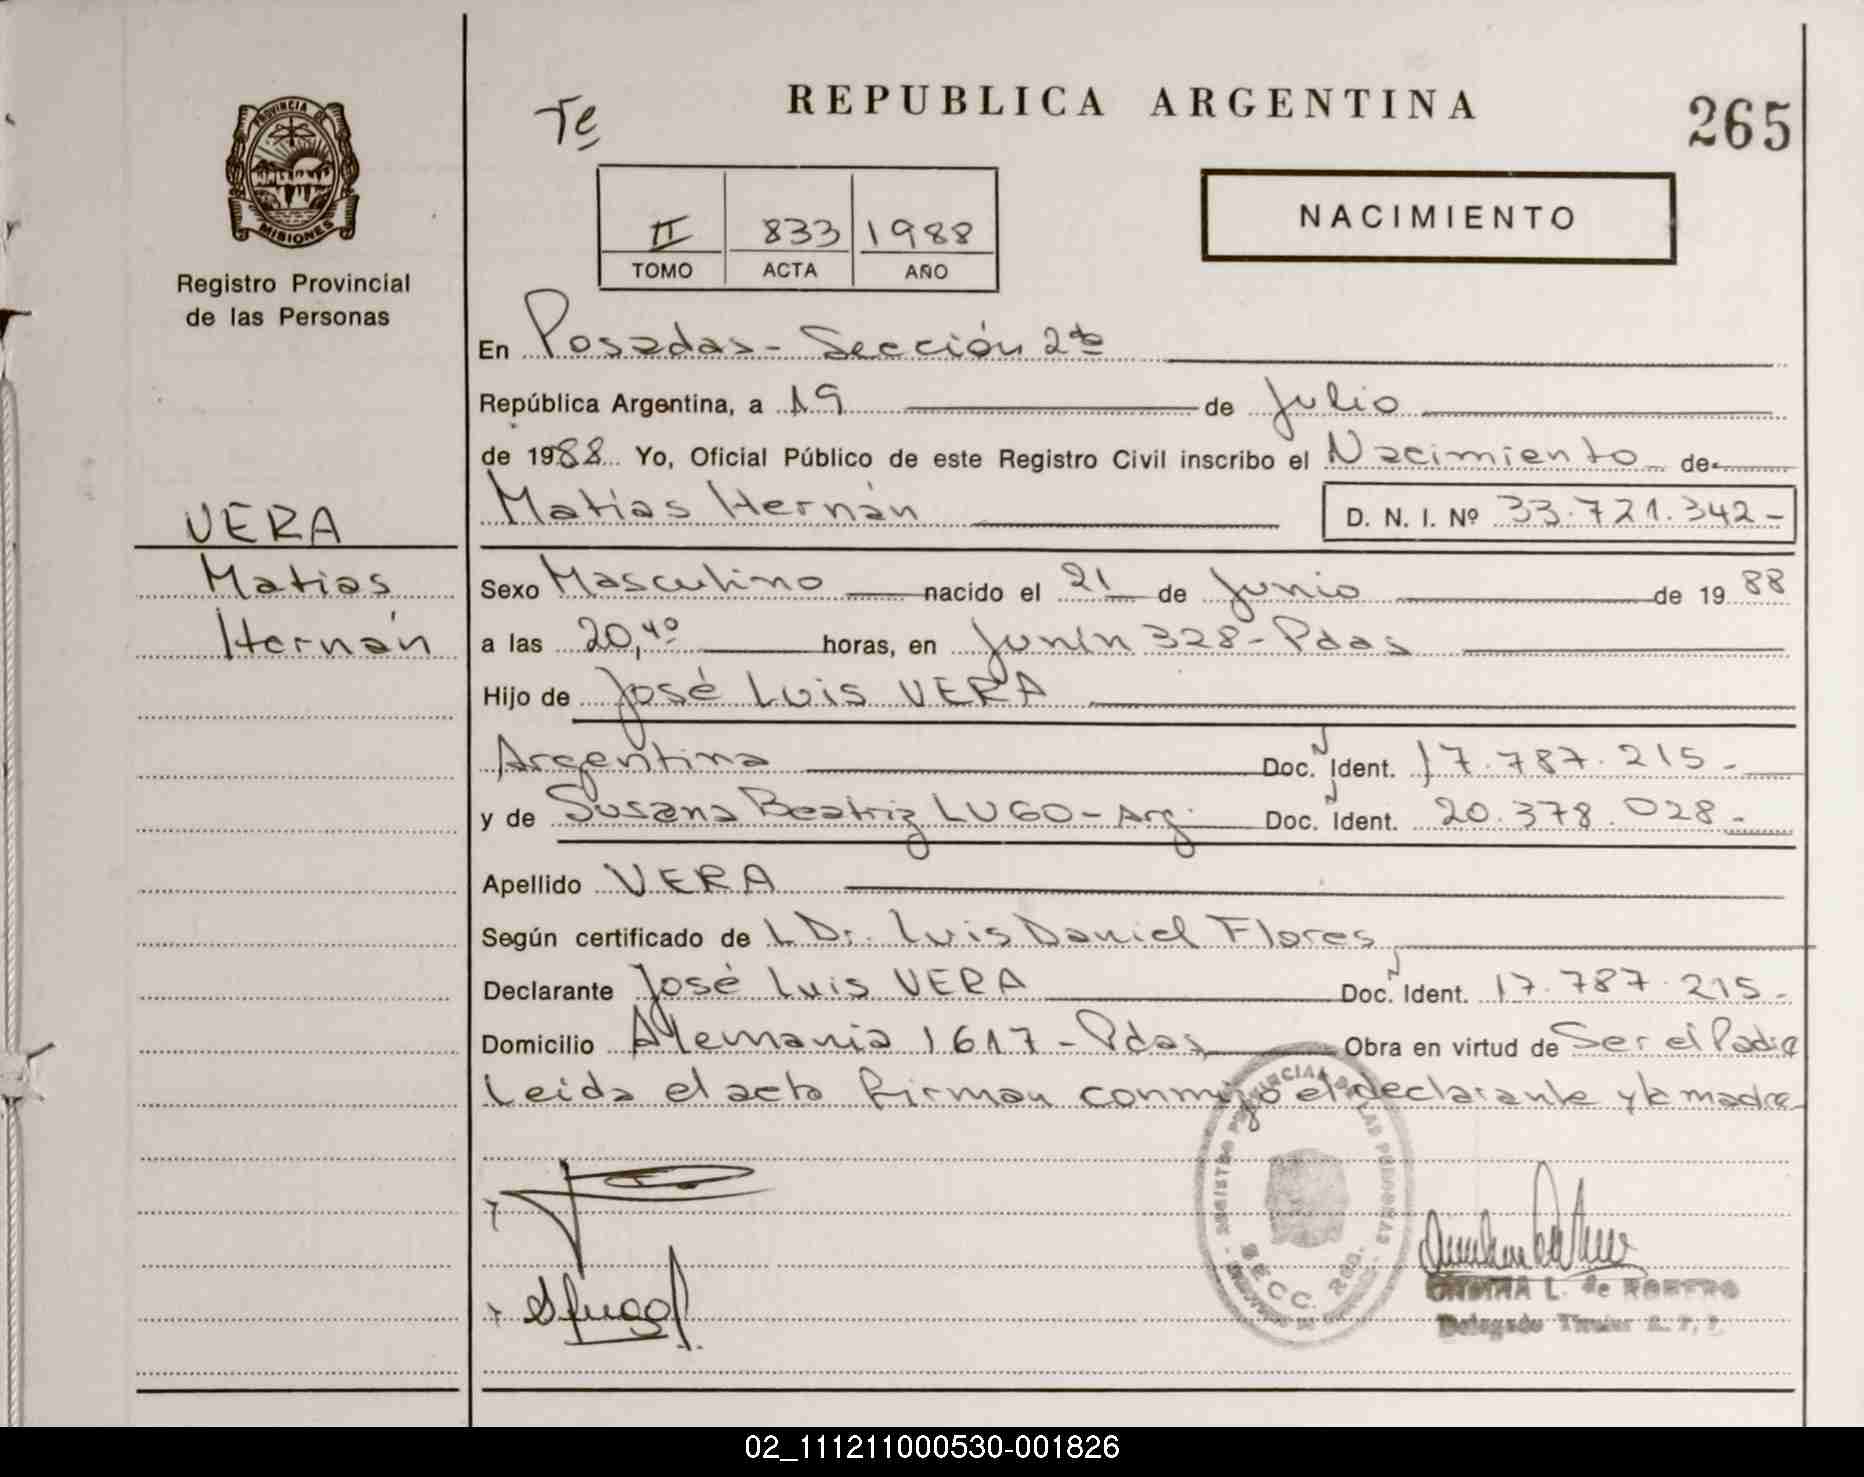 Te
REPUBLICA ARGENTINA
265
PROVINCIA
MISIONES
Registro Provincial
de las Personas
II 833 1988
TOMO ACTA AÑO
NACIMIENTO
En Posadas - Sección 2da
República Argentina, a 19 de Julio
de 1988 Yo, Oficial Público de este Registro Civil inscribo el Nacimiento de
Matías Hernán D. N. I. Nº 33.721.342-
VERA
Matías
Hernán
Sexo Masculino nacido el 21 de Junio de 1988
a las 20,40 horas, en Junín 328 - Pdas
Hijo de José Luis VERA
Argentina Doc. N Ident. 17.787.215-
y de Susana Beatriz LUGO - Arg. Doc. N Ident. 20.378.028-
Apellido VERA
Según certificado de L Dr. Luis Daniel Flores
Declarante José Luis VERA Doc. N Ident. 17.787.215-
Domicilio Alemania 1617 - Pdas Obra en virtud de Ser el Padre
Leida el acta firman conmigo el declarante y la madre
REGISTRO PROVINCIAL DE LAS PERSONAS
SECC. 2da.
L. de ROMERO
Delegado Titular R. P. P.
02_111211000530-001826